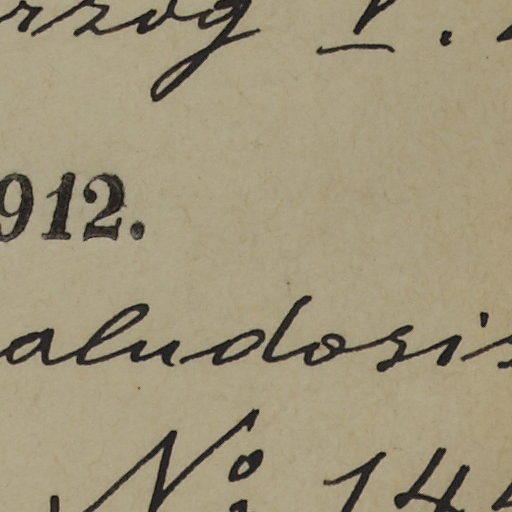 rzog V.
912.
aludosis
No 144